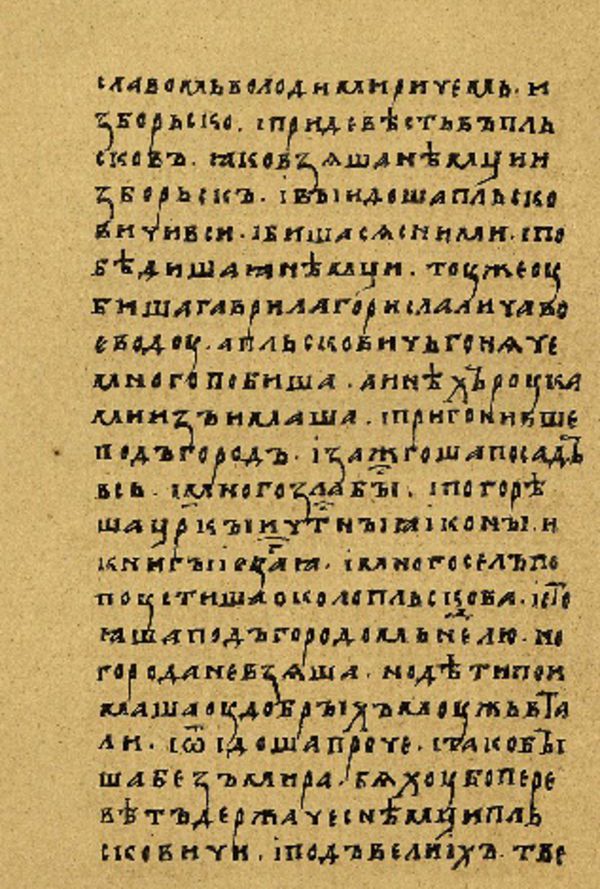 славомь володимиричемь · и
зборьско · і придевѣстьвъпль
сковъ · ꙗковзѧшанѣмци и
зборьскъ · івыидошапльско
вичивси · ібишасѧсними · іпо
бѣдишаꙗнѣмци · тоуже оу
бишагаврилагориславичаво
еводоу · апльсковичьгонѧче
многопобиша · аинѣхъроука
миизъимаша · іпригонивше
подъгородъ · ізажгошапосадъ
вєсь · імногозлабы · іпогорѣ
шацркыичтныꙗіконы · и
книгыіеуаꙗ · імногоселъпо
поустишаоколопльскова · істо
ꙗшаподъгородомьнелю · но
городаневзѧша · нодѣтипои
машаоудобрыхъмоужьвта
ли · іѿідошапроче · ітакобы
шабезъмира · бѧхоуборере
вѣтъдержачеснѣмципль
сковичи · іподъвелиіхъ · тве